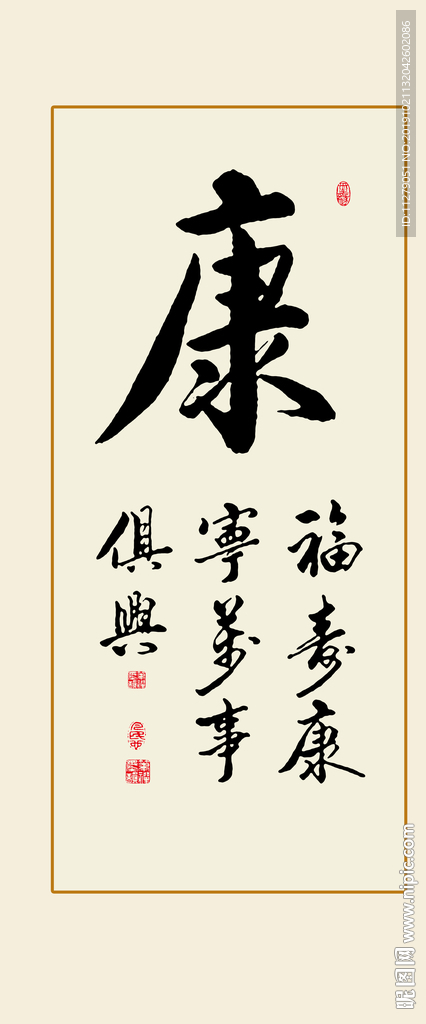 康
福寿康
寧萬事
俱興
ID:11279051 NO:20191021132042602086
昵图网 www.nipic.com